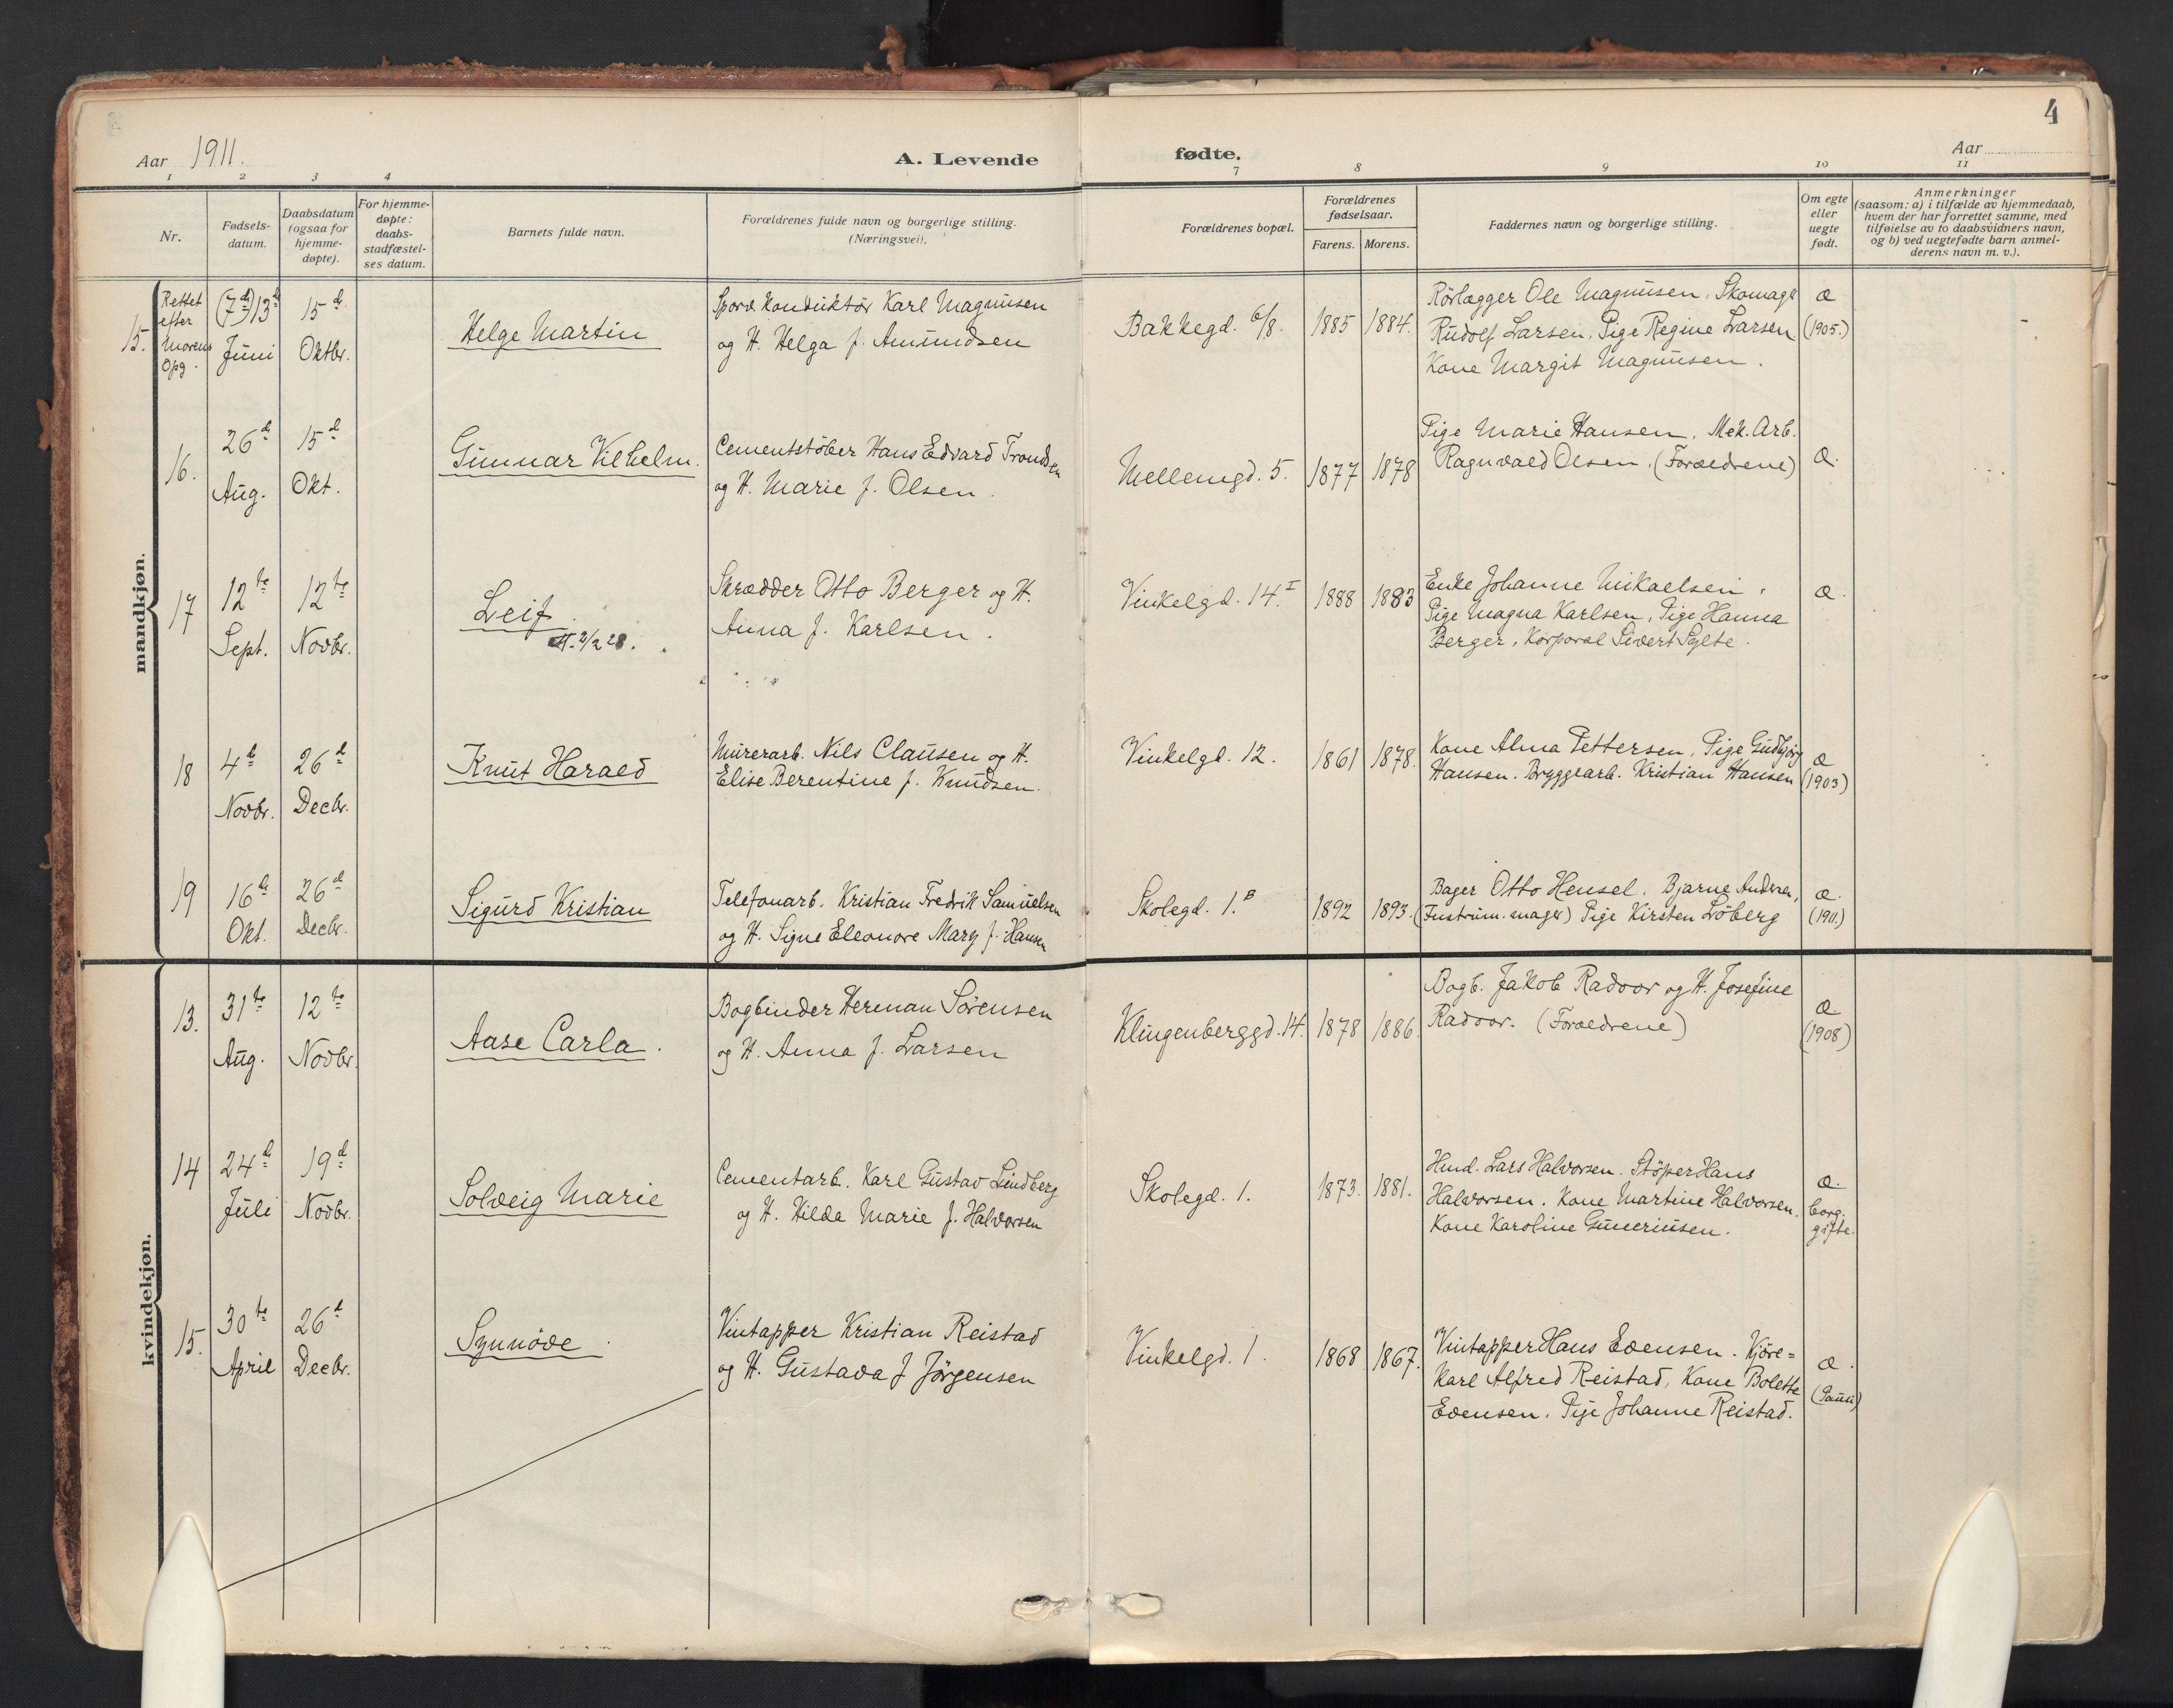 4
Aar 1911. A. Levende fødte. Aar
1 2 3 4 7 8 9 10 11
Nr.
Fødsels-
datum.
Daabsdatum
(ogsaa for
hjemme-
døpte).
For hjemme-
døpte:
daabs-
stadfæstel-
ses datum.
Barnets fulde navn.
Forældrenes fulde navn og borgerlige stilling.
(Næringsvei).
Forældrenes bopæl.
Forældrenes
fødselsaar.
Farens. Morens.
Faddernes navn og borgerlige stilling.
Om egte
eller
uegte
født.
Anmerkninger
(saasom: a) i tilfælde av hjemmedaab,
hvem der har forrettet samme, med
tilføielse av to daabsvidners navn,
og b) ved uegtefødte barn anmel-
derens navn m. v.).
mandkjøn.
15.
Rettet
efter
Morens
Opg.
(7d) 13d
Juni
15d
Oktbr.
Helge Martin
Sporv. konduktör Karl Magnusen
og H. Helga f. Amundsen
Bakkegd. 6/8.
1885
1884.
Rörlægger Ole Magnusen. Skomagr
Rudolf Larsen. Pige Regine Larsen
Kone Margit Magnusen.
Æ
(1905.)
16.
26d
Aug.
15d
Okt.
Gunnar Vilhelm.
Cementstöber Hans Edvard Trondsen
og H. Marie f. Olsen.
Mellemgd. 5.
1877
1878
Pige Marie Hansen. Mek. Arb.
Ragnvald Olsen. (Forældrene)
Æ.
17
12te
Sept.
12te
Novbr.
Leif.
2/2 28.
Skrædder Otto Berger og H.
Anna f. Karlsen.
Vinkelgd. 14.I
1888
1883
Enke Johanne Mikaelsen.
Pige Magna Karlsen. Pige Hanna
Berger. Korporal Sivert Sylte.
Æ.
18
4d
Novbr.
26d
Decbr.
Knut Harald
Murerarb. Nils Clausen og H.
Elise Berentine f. Knudsen.
Vinkelgd. 12.
1861
1878.
Kone Alma Pettersen. Pige Gudbjörg
Hansen. Bryggearb. Kristian Hansen
Æ
(1903)
19
16d
Okt.
26d
Decbr.
Sigurd Kristian
Telefonarb. Kristian Fredrik Samuelsen
og H. Signe Eleonore Mary f. Hansen
Skolegd. 1.B
1892
1893.
Bager Otto Hensel. Bjarne Andersen,
(Instrum. mager) Pige Kirsten Löberg
Æ.
(1911.)
kvindekjøn.
13.
31te
Aug.
12te
Novbr.
Aase Carla.
Bogbinder Herman Sörensen
og H. Anna f. Larsen
Klingenberggd. 14.
1878
1886
Bogb. Jakob Radoor og H. Josefine
Radoor. (Forældrene)
Æ
(1908)
14
24d
Juli
19d
Novbr.
Solveig Marie
Cementarb. Karl Gustav Lindberg
og H. Hilda Marie f. Halvorsen
Skolegd. 1.
1873.
1881.
Hmd. Lars Halvorsen. Stöper Hans
Halvorsen. Kone Martine Halvorsen.
Kone Karoline Guneriusen.
Æ.
borg.
gifte.
15.
30te
April
26d
Decbr.
Synnöve.
Vintapper Kristian Reistad
og H. Gustava f Jörgensen
Vinkelgd. 1.
1868
1867.
Vintapper Hans Evensen. Kjöre=
karl Alfred Reistad, Kone Bolette
Evensen. Pige Johanne Reistad.
Æ.